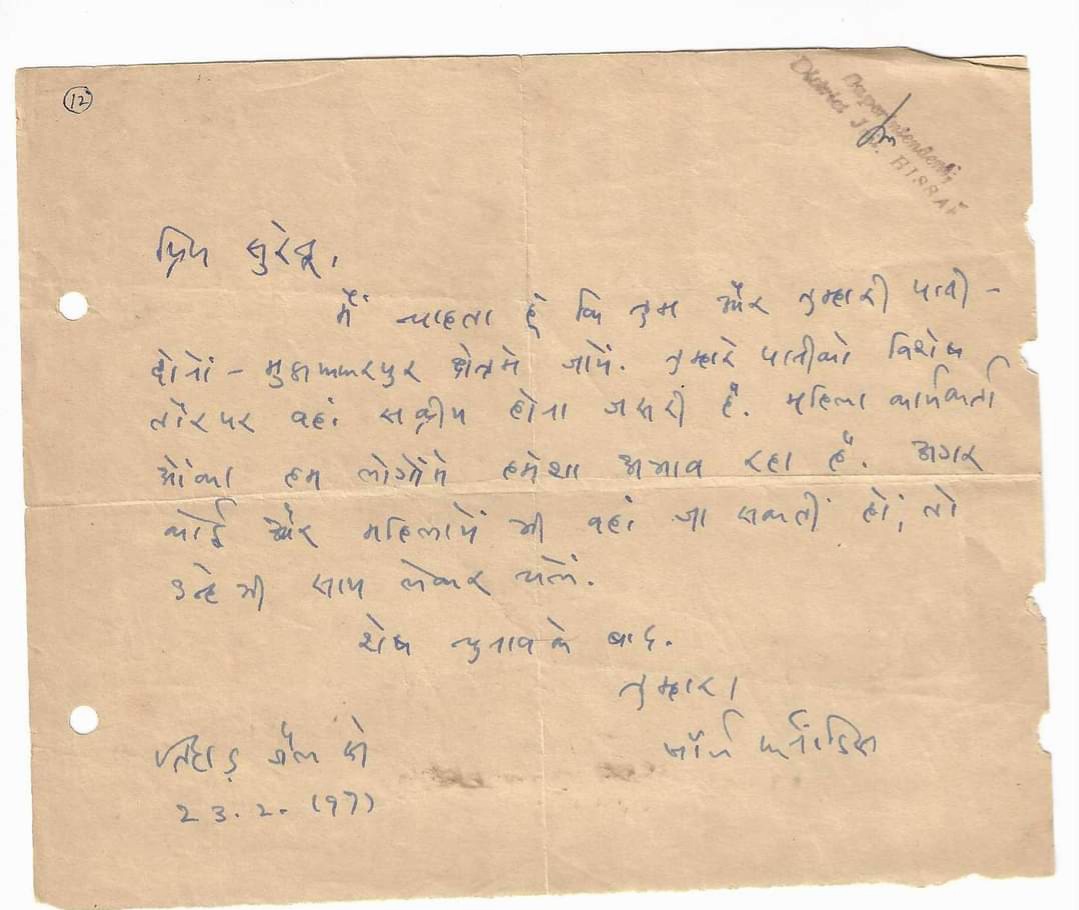 12
Superintendent,
District Jail, HISSAR
प्रिय सुरेन्द्र,
मैं चाहता हूं कि तुम और तुम्हारी पत्नी -
दोनों - मुजफ्फरपुर क्षेत्रमे जायें. तुम्हारे पत्नीको विशेष
तौरपर वहां सक्रीय होना जरूरी है. महिला कार्यकर्ता
ओंका हम लोगोंमे हमेशा अभाव रहा है. अगर
कोई और महिलायें भी वहां जा सकतीं हों, तो
उन्हे भी साथ लेकर चलें.
शेष चुनावके बाद.
तुम्हारा
जॉर्ज फर्नांडिस
तिहाड़ जेल से
23.2.1977